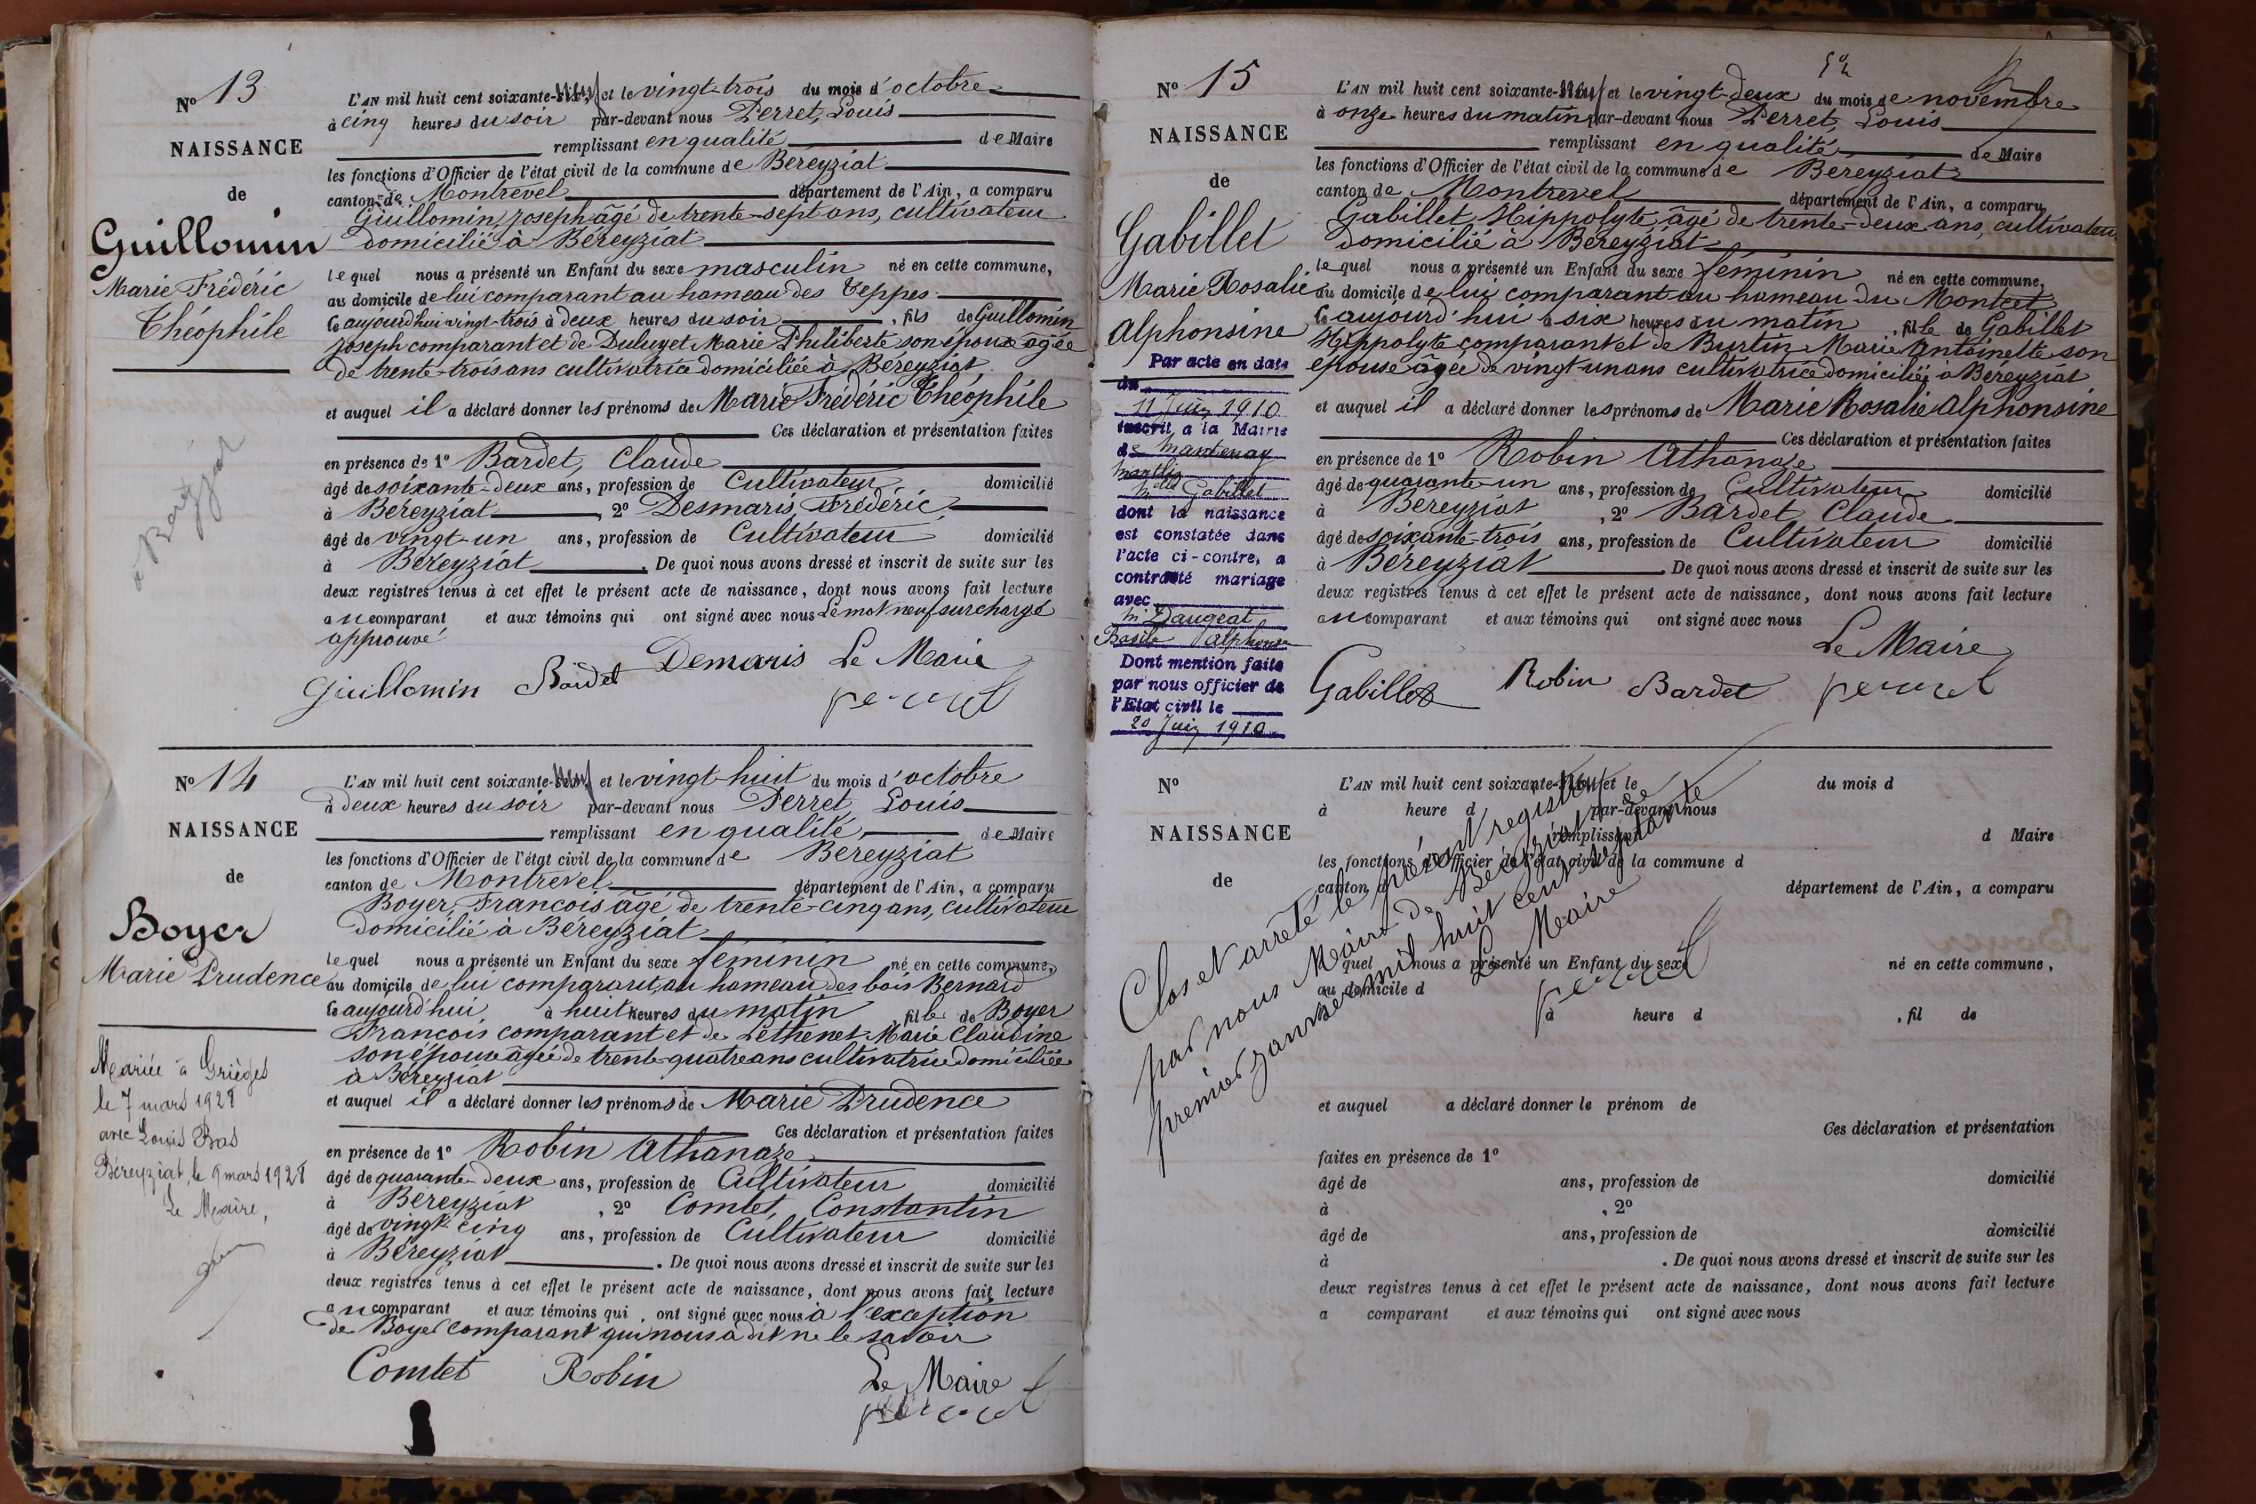 No 13
NAISSANCE
de
Guillomin
Marie Frédéric
Théophile
à Béréyziat
L'AN mil huit cent soixante-neuf et le vingt-trois du mois d'octobre
à cinq heures du soir par-devant nous Perret, Louis
remplissant en qualité de Maire
les fonctions d'Officier de l'état civil de la commune de Béréyziat
canton de Montrevel département de l'Ain, a comparu
Guillomin, Joseph âgé de trente-sept ans, cultivateur
domicilié à Béreyziat
lequel nous a présenté un Enfant du sexe masculin né en cette commune,
au domicile de lui comparant au hameau des Teppes
le aujourd'hui vingt-trois à deux heures du soir, fils de Guillomin
Joseph comparant et de Duluyet Marie Philiberte son épouse agée
de trente-trois ans cultivatrice domiciliée à Béreyziat
et auquel il a déclaré donner les prénoms de Marie Frédéric Théophile
Ces déclaration et présentation faites
en présence de 1º Bardet, Claude
âgé de soixante-deux ans, profession de Cultivateur domicilié
à Béreyziat, 2º Desmaris, Frédéric,
âgé de vingt-un ans, profession de Cultivateur domicilié
à Béreyziat. De quoi nous avons dressé et inscrit de suite sur les
deux registres tenus à cet effet le présent acte de naissance, dont nous avons fait lecture
au comparant et aux témoins qui ont signé avec nous Le mot neuf surchargé
approuvé
Guillomin Bardet Demaris Le Maire
perret
No 14
NAISSANCE
de
Boyer
Marie Prudence
Mariée à Grièges
le 7 mars 1928
avec Louis Bas
Béreyziat, le 9 mars 1928
Le Maire,
L'AN mil huit cent soixante-neuf et le vingt-huit du mois d'octobre
à deux heures du soir par-devant nous Perret, Louis
remplissant en qualité de Maire
les fonctions d'Officier de l'état civil de la commune de Béreyziat
canton de Montrevel département de l'Ain, a comparu
Boyer, François âgé de trente-cinq ans, cultivateur
domicilié à Béreyziat
lequel nous a présenté un Enfant du sexe féminin né en cette commune,
au domicile de lui comparant, au hameau des bois Bernard
le aujourd'hui à huit heures du matin, fille de Boyer
François comparant et de Lethenet Marie Claudine
son épouse âgée de trente-quatre ans cultivatrice domiciliée
à Béreyziat
et auquel il a déclaré donner les prénoms de Marie Prudence
Ces déclaration et présentation faites
en présence de 1º Robin Athanaze
âgé de quarante-deux ans, profession de Cultivateur domicilié
à Béreyziat, 2º Comtet, Constantin
âgé de vingt-cinq ans, profession de Cultivateur domicilié
à Béreyziat. De quoi nous avons dressé et inscrit de suite sur les
deux registres tenus à cet effet le présent acte de naissance, dont nous avons fait lecture
au comparant et aux témoins qui ont signé avec nous à l'exception
de Boyer comparant qui nous a dit ne le savoir
Comtet Robin Le Maire
perret
No 15
NAISSANCE
de
Gabillet
Marie Rosalie
Alphonsine
Par acte en date
du
11 Juin 1910
inscrit a la Mairie
de Mantenay
Montlin
Mlle Gabillet
dont la naissance
est constatée dans
l'acte ci-contre, a
contracté mariage
avec
Mr Daugeat
Basile Alphonse
Dont mention faite
par nous officier de
l'Etat civil le
20 Juin 1910
L'AN mil huit cent soixante-neuf et le vingt-deux du mois de novembre
à onze heures du matin par-devant nous Perret, Louis
remplissant en qualité de Maire
les fonctions d'Officier de l'état civil de la commune de Béreyziat
canton de Montrevel département de l'Ain, a comparu
Gabillet, Hippolyte, âgé de trente-deux ans, cultivateur
domicilié à Béreyziat
lequel nous a présenté un Enfant du sexe féminin né en cette commune,
au domicile de lui comparant au hameau du Montcet
le aujourd'hui à six heures du matin, fille de Gabillet
Hippolyte comparant et de Burtin Marie Antoinette son
épouse âgée de vingt-un ans cultivatrice domiciliée à Béreyziat
et auquel il a déclaré donner les prénoms de Marie Rosalie Alphonsine
Ces déclaration et présentation faites
en présence de 1º Robin Athanaze
âgé de quarante-un ans, profession de Cultivateur domicilié
à Béreyziat, 2º Bardet, Claude
âgé de soixante-trois ans, profession de Cultivateur domicilié
à Béreyziat. De quoi nous avons dressé et inscrit de suite sur les
deux registres tenus à cet effet le présent acte de naissance, dont nous avons fait lecture
au comparant et aux témoins qui ont signé avec nous
Le Maire
Gabillet Robin Bardet perret
No
NAISSANCE
de
L'AN mil huit cent soixante-neuf et le du mois d
à heure d par-devant nous
remplissant d Maire
les fonctions d'Officier de l'état civil de la commune d
canton d département de l'Ain, a comparu
quel nous a présenté un Enfant du sexe né en cette commune,
au domicile d
à heure d, fil de
et auquel a déclaré donner le prénom de
Ces déclaration et présentation
faites en présence de 1º
âgé de ans, profession de domicilié
à, 2º
âgé de ans, profession de domicilié
à. De quoi nous avons dressé et inscrit de suite sur les
deux registres tenus à cet effet le présent acte de naissance, dont nous avons fait lecture
a comparant et aux témoins qui ont signé avec nous
Clos et arrêté le présent registre
par nous Maire de Béreyziat le
premier janvier mil huit cent septante
Le Maire
perret